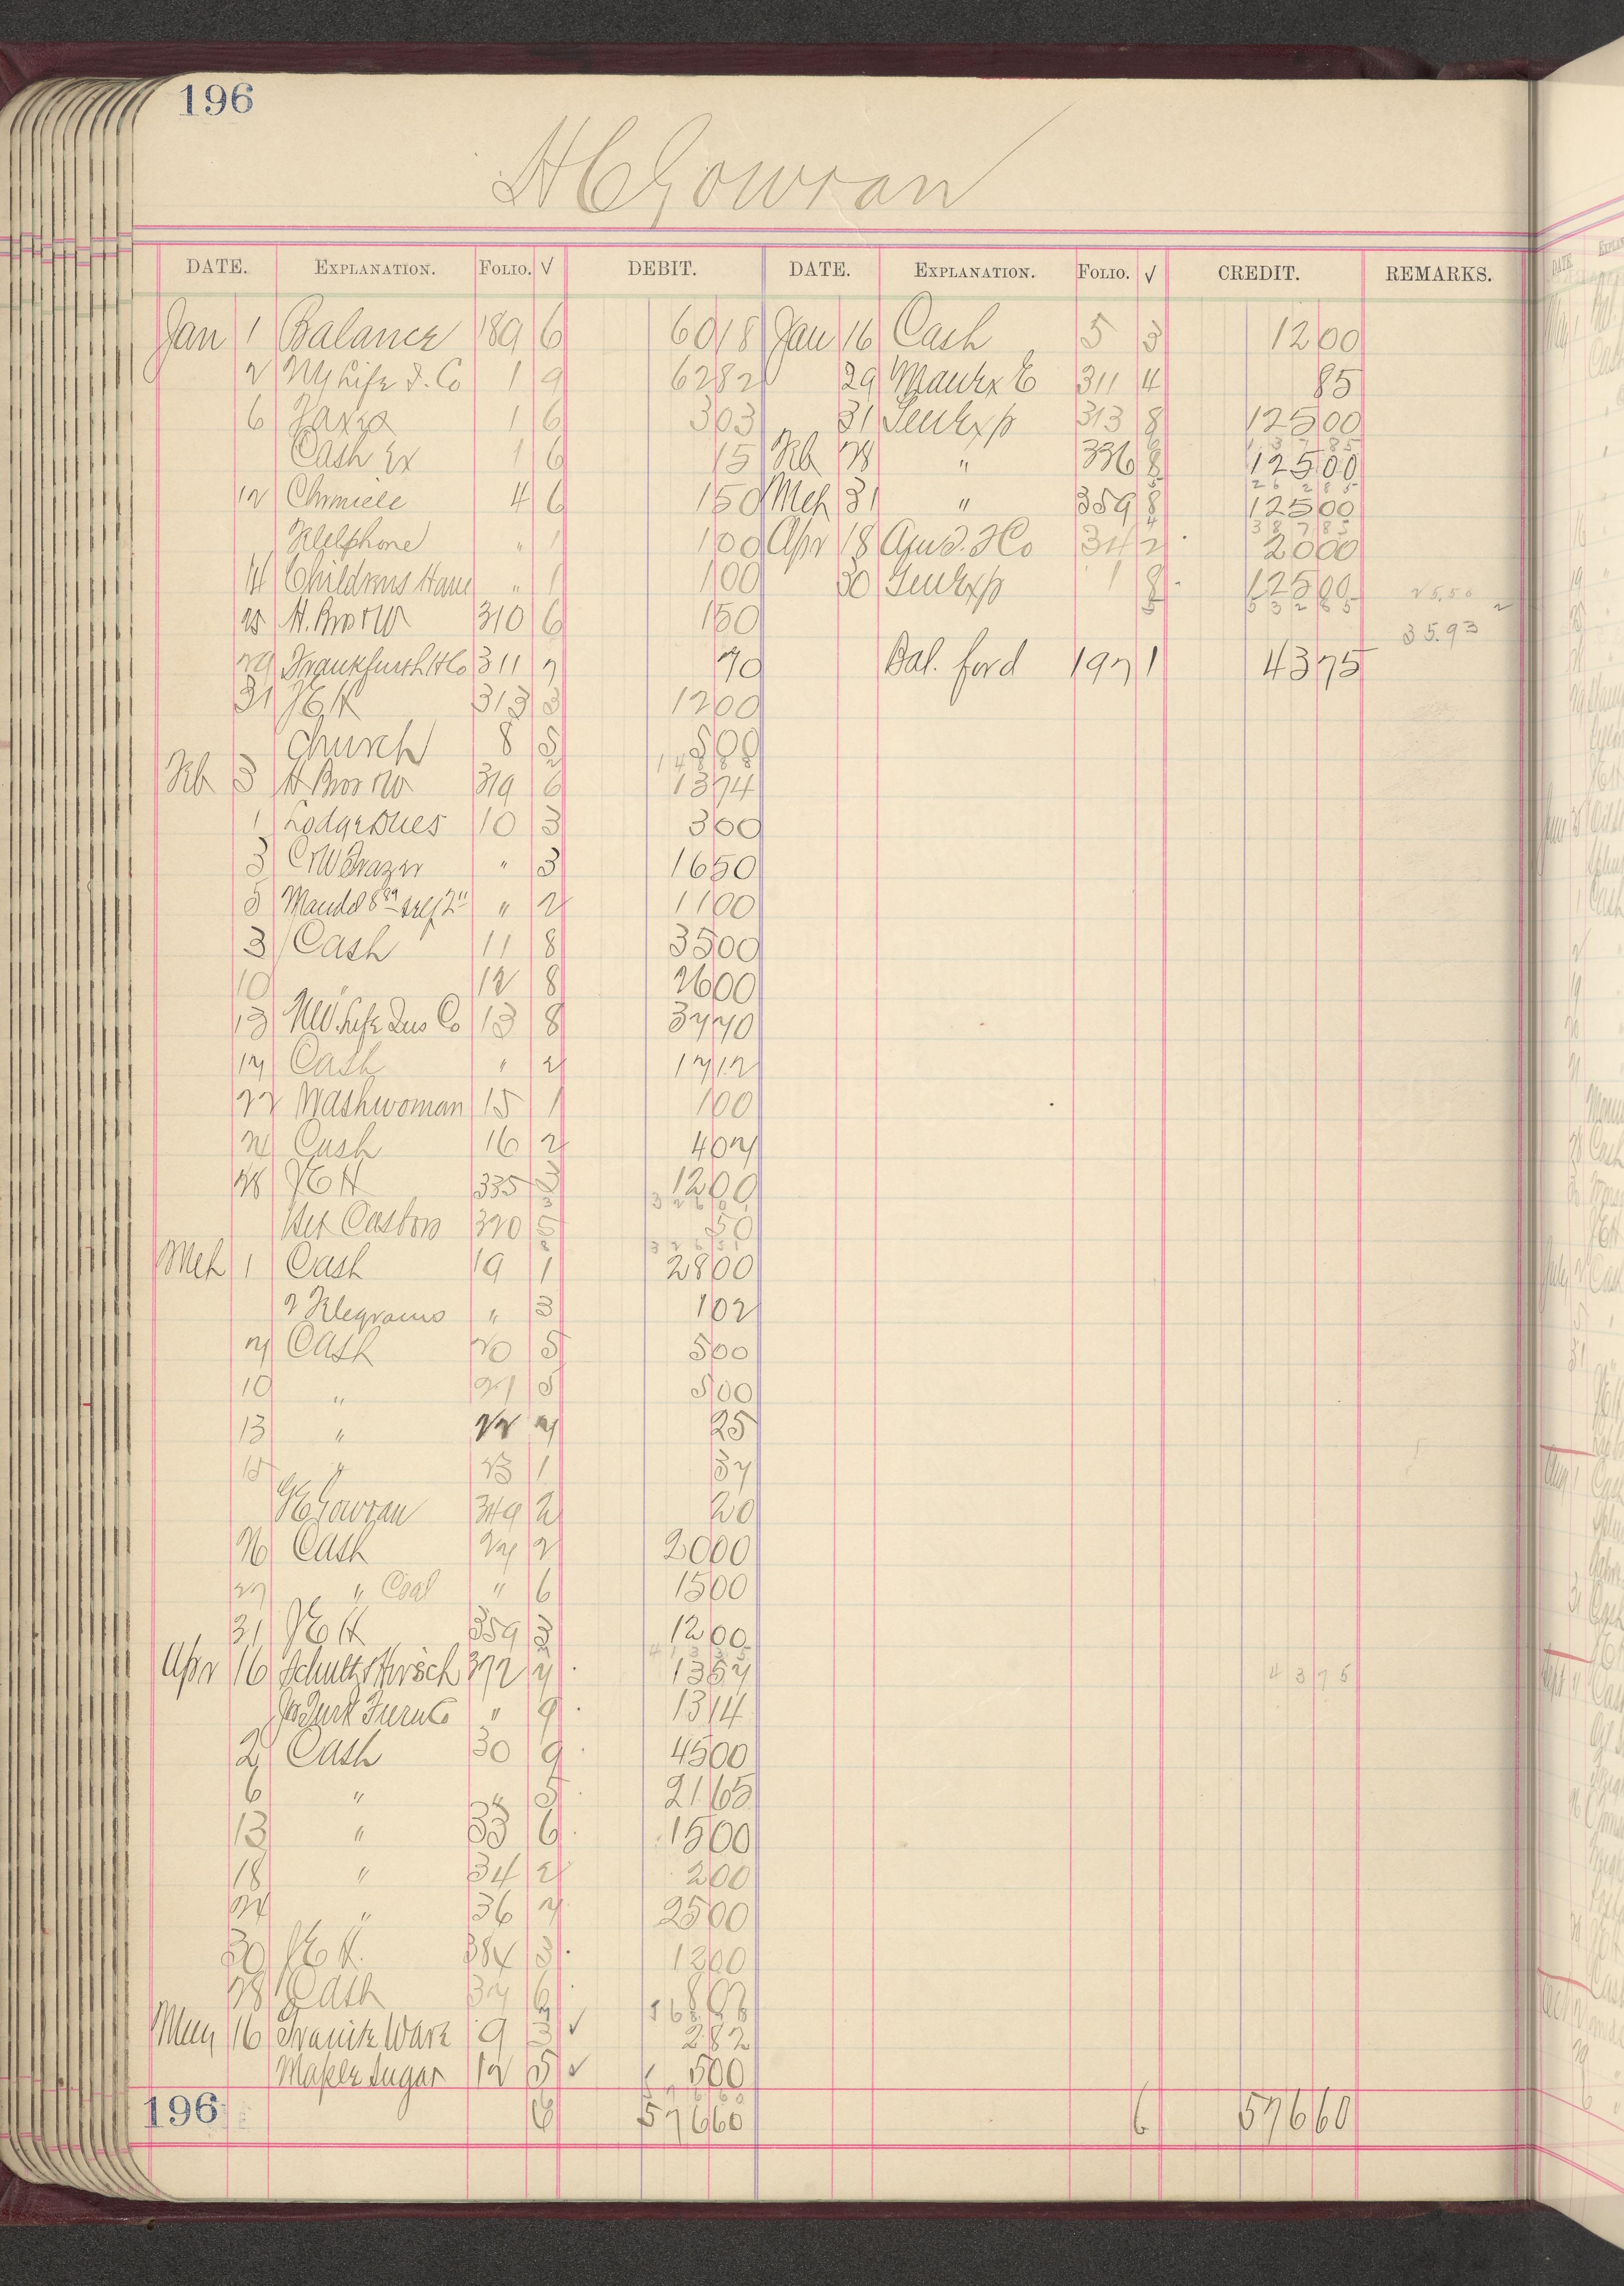 196
H C Gowran
DATE. EXPLANATION. FOLIO. √ DEBIT. DATE. EXPLANATION. FOLIO. √ CREDIT. REMARKS.
Jan 1 Balance 189 6 6018 Jan 16 Cash 5 3 1200
2 NY Life I. Co 1 9 6282 29 311 4 85
6 Taxes 1 6 303 31 Gen Exp 313 8 12500
Cash Ex 1 6 15 Feb 28 " 336 8 12500
12 4 6 150 Mch 31 " 359 8 12500
Telephone " 1 100 Apr 18 34 2 2000
14 Childrens Home " 1 100 30 Gen Exp 1 8 12500
25 H. Bros & W 310 6 150 35.93
29 Frankfurth H Co 311 7 70 Bal. ford 197 1 4375
31 313 3 1200
Church 8 5 500
Feb 3 H Bros & W 319 6 1374
1 Lodge Dues 10 3 300
3 C W Frazer " 3 1650
5 " 2 1100
3 Cash 11 8 3500
10 " 12 8 2600
13 NW Life Ins Co 13 8 3770
17 Cash " 2 1712
22 Washwoman 15 1 100
24 Cash 16 2 402
28 335 3 1200
Set Castors 320 5 50
Mch 1 Cash 19 1 2800
2 Telegrams " 3 102
7 Cash 20 5 500
10 " 21 5 500
13 " 22 7 25
15 " 23 1 37
Gowran 349 2 20
26 Cash 27 2 2000
27 " Coal " 6 1500
31 359 3 1200
Apr 16 Schultz & Hirsch 372 7 1357 4375
Furn Co " 9 1314
2 Cash 30 9 4500
6 " " 5 2165
13 " 33 6 1500
18 " 34 2 200
24 " 36 7 2500
30 384 3 1200
28 Cash 37 6
May 16 Granite Ware 9 3 √ 282
Maple Sugar 12 5 √ 500
196 6 57660 6 57660